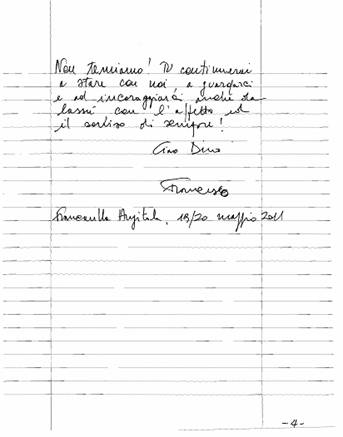 Non temiamo! Tu continuerai
a stare con noi, a guardarci
e ad incoraggiarci anche da
lassù con l'affetto ed
il sorriso di sempre!
Ciao Dino
Francesco
Francavilla Angitola, 19/20 maggio 2011
-4-